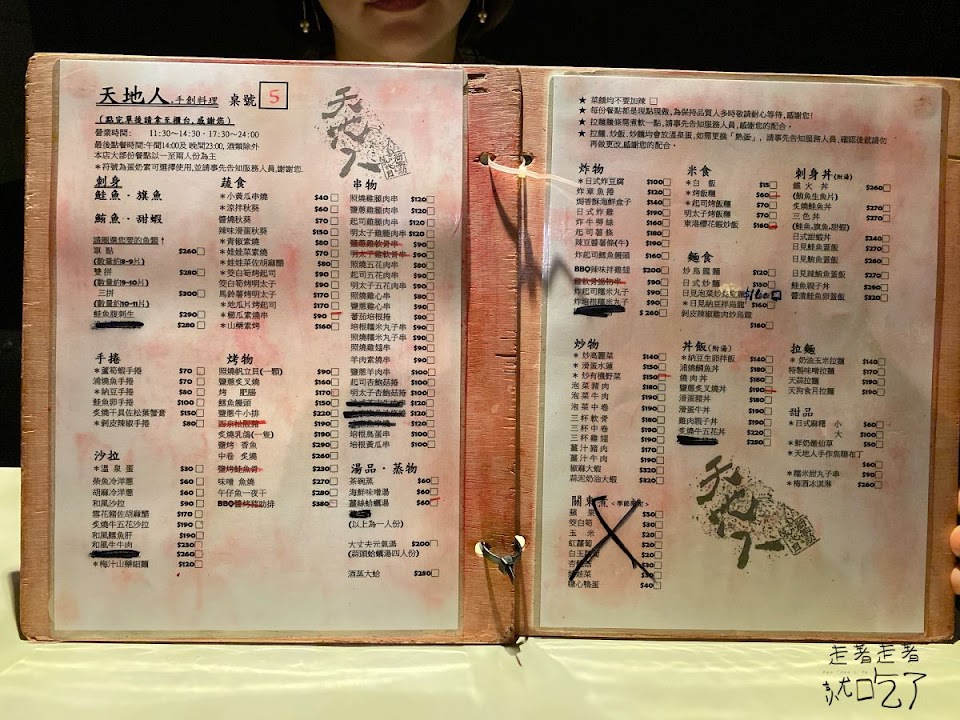 天地人.手創料理 桌號 5
(點完單後請拿至櫃台,感謝您)
營業時間: 11:30～14:30．17:30～24:00
最後點餐時間:午間14:00及 晚間23:00, 酒類除外
本店大部份餐點以一至兩人份為主
＊符號為蛋奶素可選擇使用,並請事先告知服務人員,謝謝您.
天地人
刺身
鮭魚．旗魚
鮪魚．甜蝦
請圈選您要的魚類↑
單 點 $260
(數量約8-9片)
雙拼 $280
(數量約9-10片)
三拼 $300
(數量約10-11片)
鮭魚腹刺生 $290
$280
手捲
＊蘆筍蝦手捲 $70
浦燒魚手捲 $70
＊納豆手捲 $80
鮭魚卵手捲 $100
炙燒干貝佐松葉蟹膏 $150
＊剝皮辣椒手捲 $80
沙拉
＊溫泉蛋 $30
柴魚冷洋蔥 $60
胡麻冷洋蔥 $60
和風沙拉 $90
雪花豬佐胡麻醋 $170
炙燒牛五花沙拉 $190
和風鱈魚肝 $190
和風牛牛肉 $230
$260
＊梅汁山藥細麵 $120
蔬食
＊小黃瓜串燒 $40
＊涼拌秋葵 $60
醬燒秋葵 $70
辣味滑蛋秋葵 $150
＊青椒素燒 $70
＊娃娃菜素燒 $70
＊娃娃菜佐胡麻醋 $80
＊筊白筍烤起司 $90
筊白筍烤明太子 $90
馬鈴薯烤明太子 $170
＊地瓜片烤起司 $170
＊櫛瓜素燒 $90
＊山藥素烤 $160
烤物
照燒帆立貝(一顆) $90
鹽蔥炙叉燒 $160
烤 肥腸 $170
鱈魚饅頭 $150
鹽蔥牛小排 $220
西京松阪豬 $190
炙燒乳鴿(一隻) $290
鹽烤 香魚 $290
中卷 炙燒 $260
鹽烤鮭魚骨 $230
味噌 魚燒 $270
午仔魚一夜干 $280
BBQ醬烤豬肋排 $380
串物
照燒雞腿肉串 $120
鹽蔥雞腿肉串 $120
起司雞腿肉串 $120
明太子雞腿肉串 $120
鹽蔥雞軟骨串 $90
明太子雞軟骨串 $90
照燒五花肉串 $80
起司五花肉串 $90
明太子五花肉串 $90
照燒雞心串 $80
鹽蔥雞心串 $80
蕃茄培根串 $90
培根糯米丸子串 $90
照燒糯米丸子串 $90
照燒雞翅串 $90
羊肉素燒串 $90
鹽蔥羊肉串 $90
起司杏鮑菇捲 $100
明太子杏鮑菇捲 $100
$120
$120
$120
培根鳥蛋串 $90
培根黃瓜串 $90
湯品．蒸物
茶碗蒸 $60
海鮮味噌湯 $60
薑絲蛤蠣湯 $60
(以上為一人份)
大丈夫元氣湯 $200
(蒜頭蛤蠣湯四人份)
酒蒸大蛤 $280
★ 菜餚均不要加辣
★ 每份餐點都是現點現做,為保持品質人多時敬請耐心等待,感謝您!
★ 拉麵麵條需煮軟一點,請事先告知服務人員,感謝您的配合。
★ 拉麵．炒飯．炒麵均會放溫泉蛋,如需更換「熟蛋」, 請事先告知服務人員,確認後就請勿
再做更改,感謝您的配合。
炸物
＊日式炸豆腐 $100
炸章魚燒 $90
焗香酥海鮮盒子 $140
日式炸雞 $190
炸牛蒡絲 $180
起司薯條 $180
辣豆醬薯條(牛) $190
炸起司鱈魚饅頭 $160
BBQ辣味拌雞翅 $200
$90
炸起司糯米丸子 $90
炸培根糯米丸子 $90
$260
炒物
＊炒高麗菜 $140
＊滑蛋木蓮 $150
＊炒有機野菜 $150
泡菜豬肉 $180
泡菜牛肉 $190
泡菜中卷 $190
三杯軟骨 $180
三杯中卷 $190
三杯雞翅 $190
薑汁豬肉 $170
薑汁牛肉 $190
椒麻大蝦 $320
蒜泥奶油大蝦 $320
關東煮
蘿蔔 $30
筊白筍 $30
玉米 $30
紅蘿蔔 $20
$20
$30
娃娃菜 $30
糖心鴨蛋 $40
米食
＊白飯 $15
＊烤飯糰 $60
＊起司烤飯糰 $70
明太子烤飯糰 $70
東港櫻花蝦炒飯 $160
麵食
炒烏龍麵 $120
日式炒麵 $130
日見泡菜炒烏龍麵 $160
＊日見納豆拌烏龍 $160
剝皮辣椒雞肉炒烏龍
$160
丼飯(附湯)
＊納豆生卵拌飯 $140
浦燒鯛魚丼 $180
燒肉丼 $180
鹽蔥炙叉燒丼 $190
滑蛋豬丼 $180
滑蛋牛丼 $190
雞肉親子丼 $190
炙燒牛五花丼 $220
$280
刺身丼(附湯)
鐵火丼 $260
(鮪魚生魚片)
炙燒鮭魚丼 $270
三色丼 $270
(鮭魚,旗魚,甜蝦)
日式甜蝦丼 $240
日見鮭魚蓋飯 $270
日見鮪魚蓋飯 $260
日見辣鮪魚蓋飯 $270
鮭魚親子丼 $280
醬漬鮭魚卵蓋飯 $320
拉麵
＊奶油玉米拉麵 $140
特製味噌拉麵 $170
天蒜拉麵 $190
天狗食月拉麵 $190
甜品
＊日式麻糬 小 $60
大 $100
＊鮮奶嫩仙草 $50
＊天地人手作焦糖布丁
$60
＊糯米甜丸子串 $90
＊梅酒冰淇淋 $260
天地人
走著走著
就吃了